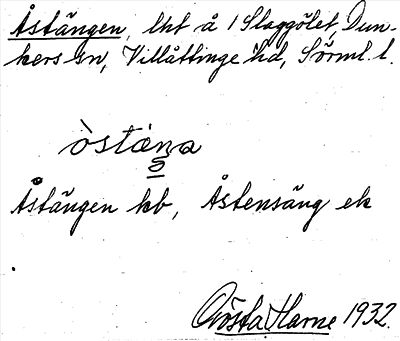 Åstängen, lht å 1 Slaggölet, Dun-
kers sn, Villåttinge hd, Sörml. l.
òstäŋa
o
Åstängen kb, Åstensäng ek
Gösta Harne 1932.